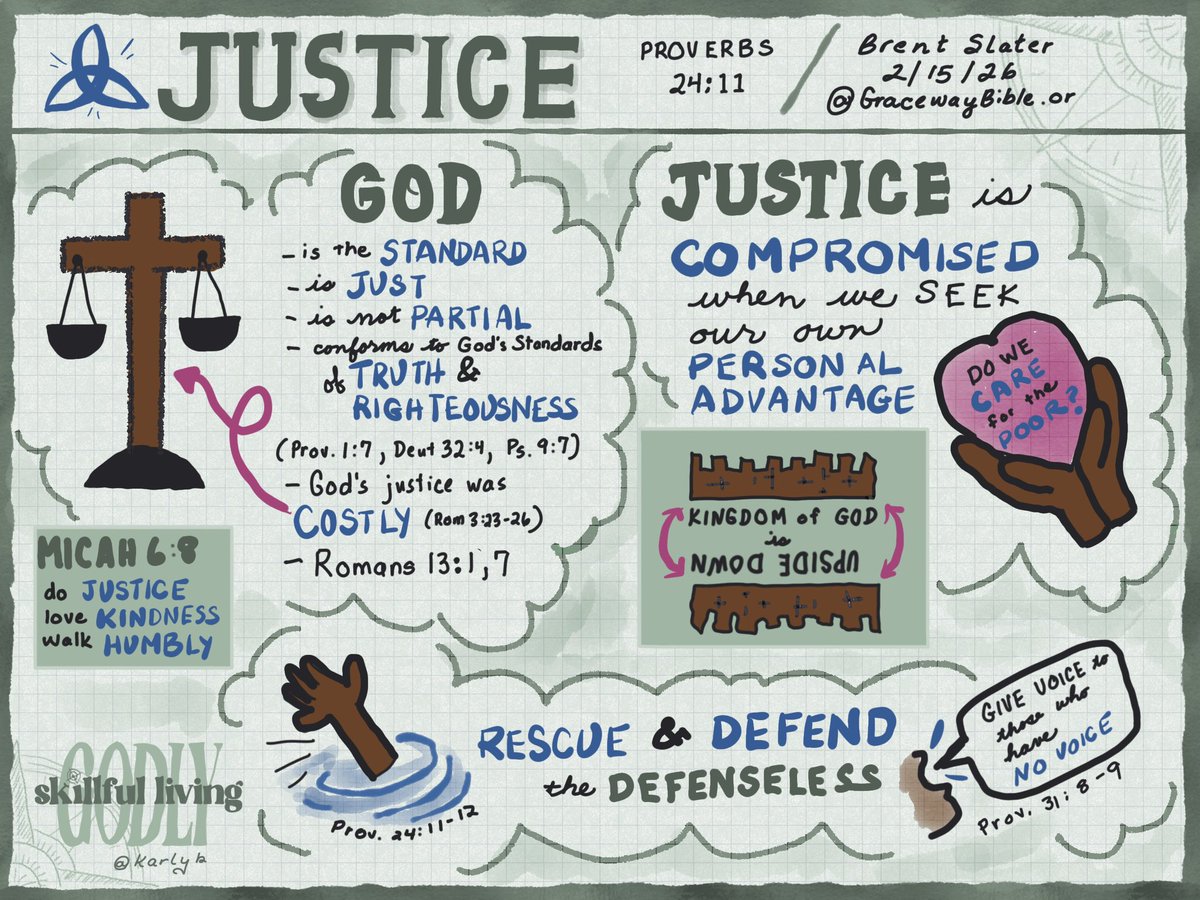 JUSTICE
PROVERBS
24:11
Brent Slater
2/15/26
@GracewayBible.or
GOD
- is the STANDARD
- is JUST
- is not PARTIAL
- conforms to God's Standards
of TRUTH &
RIGHTEOUSNESS
(Prov. 1:7, Deut 32:4, Ps. 9:7)
- God's justice was
COSTLY (Rom 3:23-26)
- Romans 13:1,7
MICAH 6:8
do JUSTICE
love KINDNESS
walk HUMBLY
JUSTICE is
COMPROMISED
when we SEEK
our own
PERSONAL
ADVANTAGE
DO WE
CARE
for the
POOR?
KINGDOM of GOD
is
UPSIDE DOWN
RESCUE & DEFEND
the DEFENSELESS
Prov. 24:11-12
GIVE VOICE to
those who
have
NO VOICE
Prov. 31:8-9
GODLY
skillful living
@karlyb